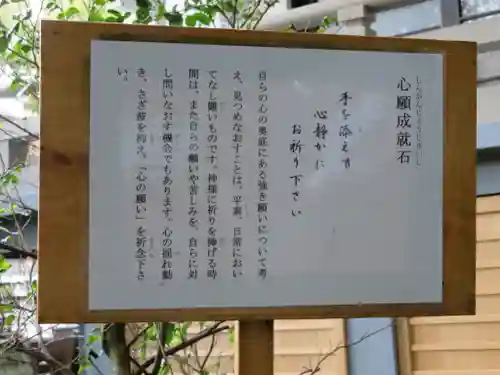 心願成就石
手を添えて
心静かに
お祈り下さい
自らの心の奥底にある強き願いについて考
え、見つめなおすことは、平素、日常におい
てなし難いものです。神様に祈りを捧げる時
間は、また自らの願いや苦しみを、自らに対
し問いなおす機会でもあります。心の揺れ動
き、さざ波を抑へ、「心の願い」を祈念下さ
い。